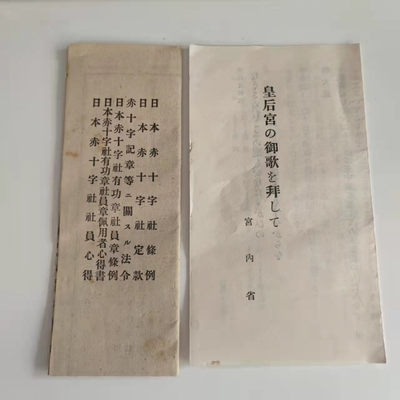 日本赤十字社條例
日本赤十字社定款
赤十字記章等ニ關スル法令
日本赤十字社有功章社員章條例
日本赤十字社有功章社員章佩用者心得書
日本赤十字社社員心得
皇后宮の御歌を拜して
宮内省